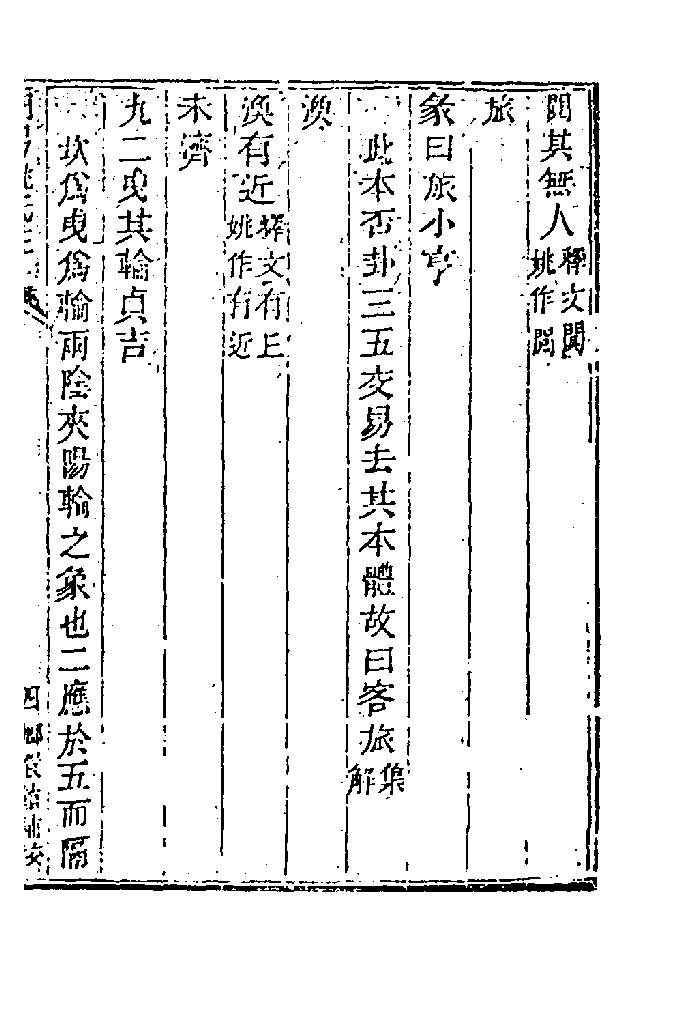 闃其無人釋文闃姚作閱
旅
彖曰旅小亨
此本否卦三五交易去其本體故曰客旅集解
渙
渙有近釋文有丘姚作有近
未濟
九二曳其輪貞吉
坎爲曳爲輪兩陰夾陽輪之象也二應於五而隔
四 嫏嬛館補校